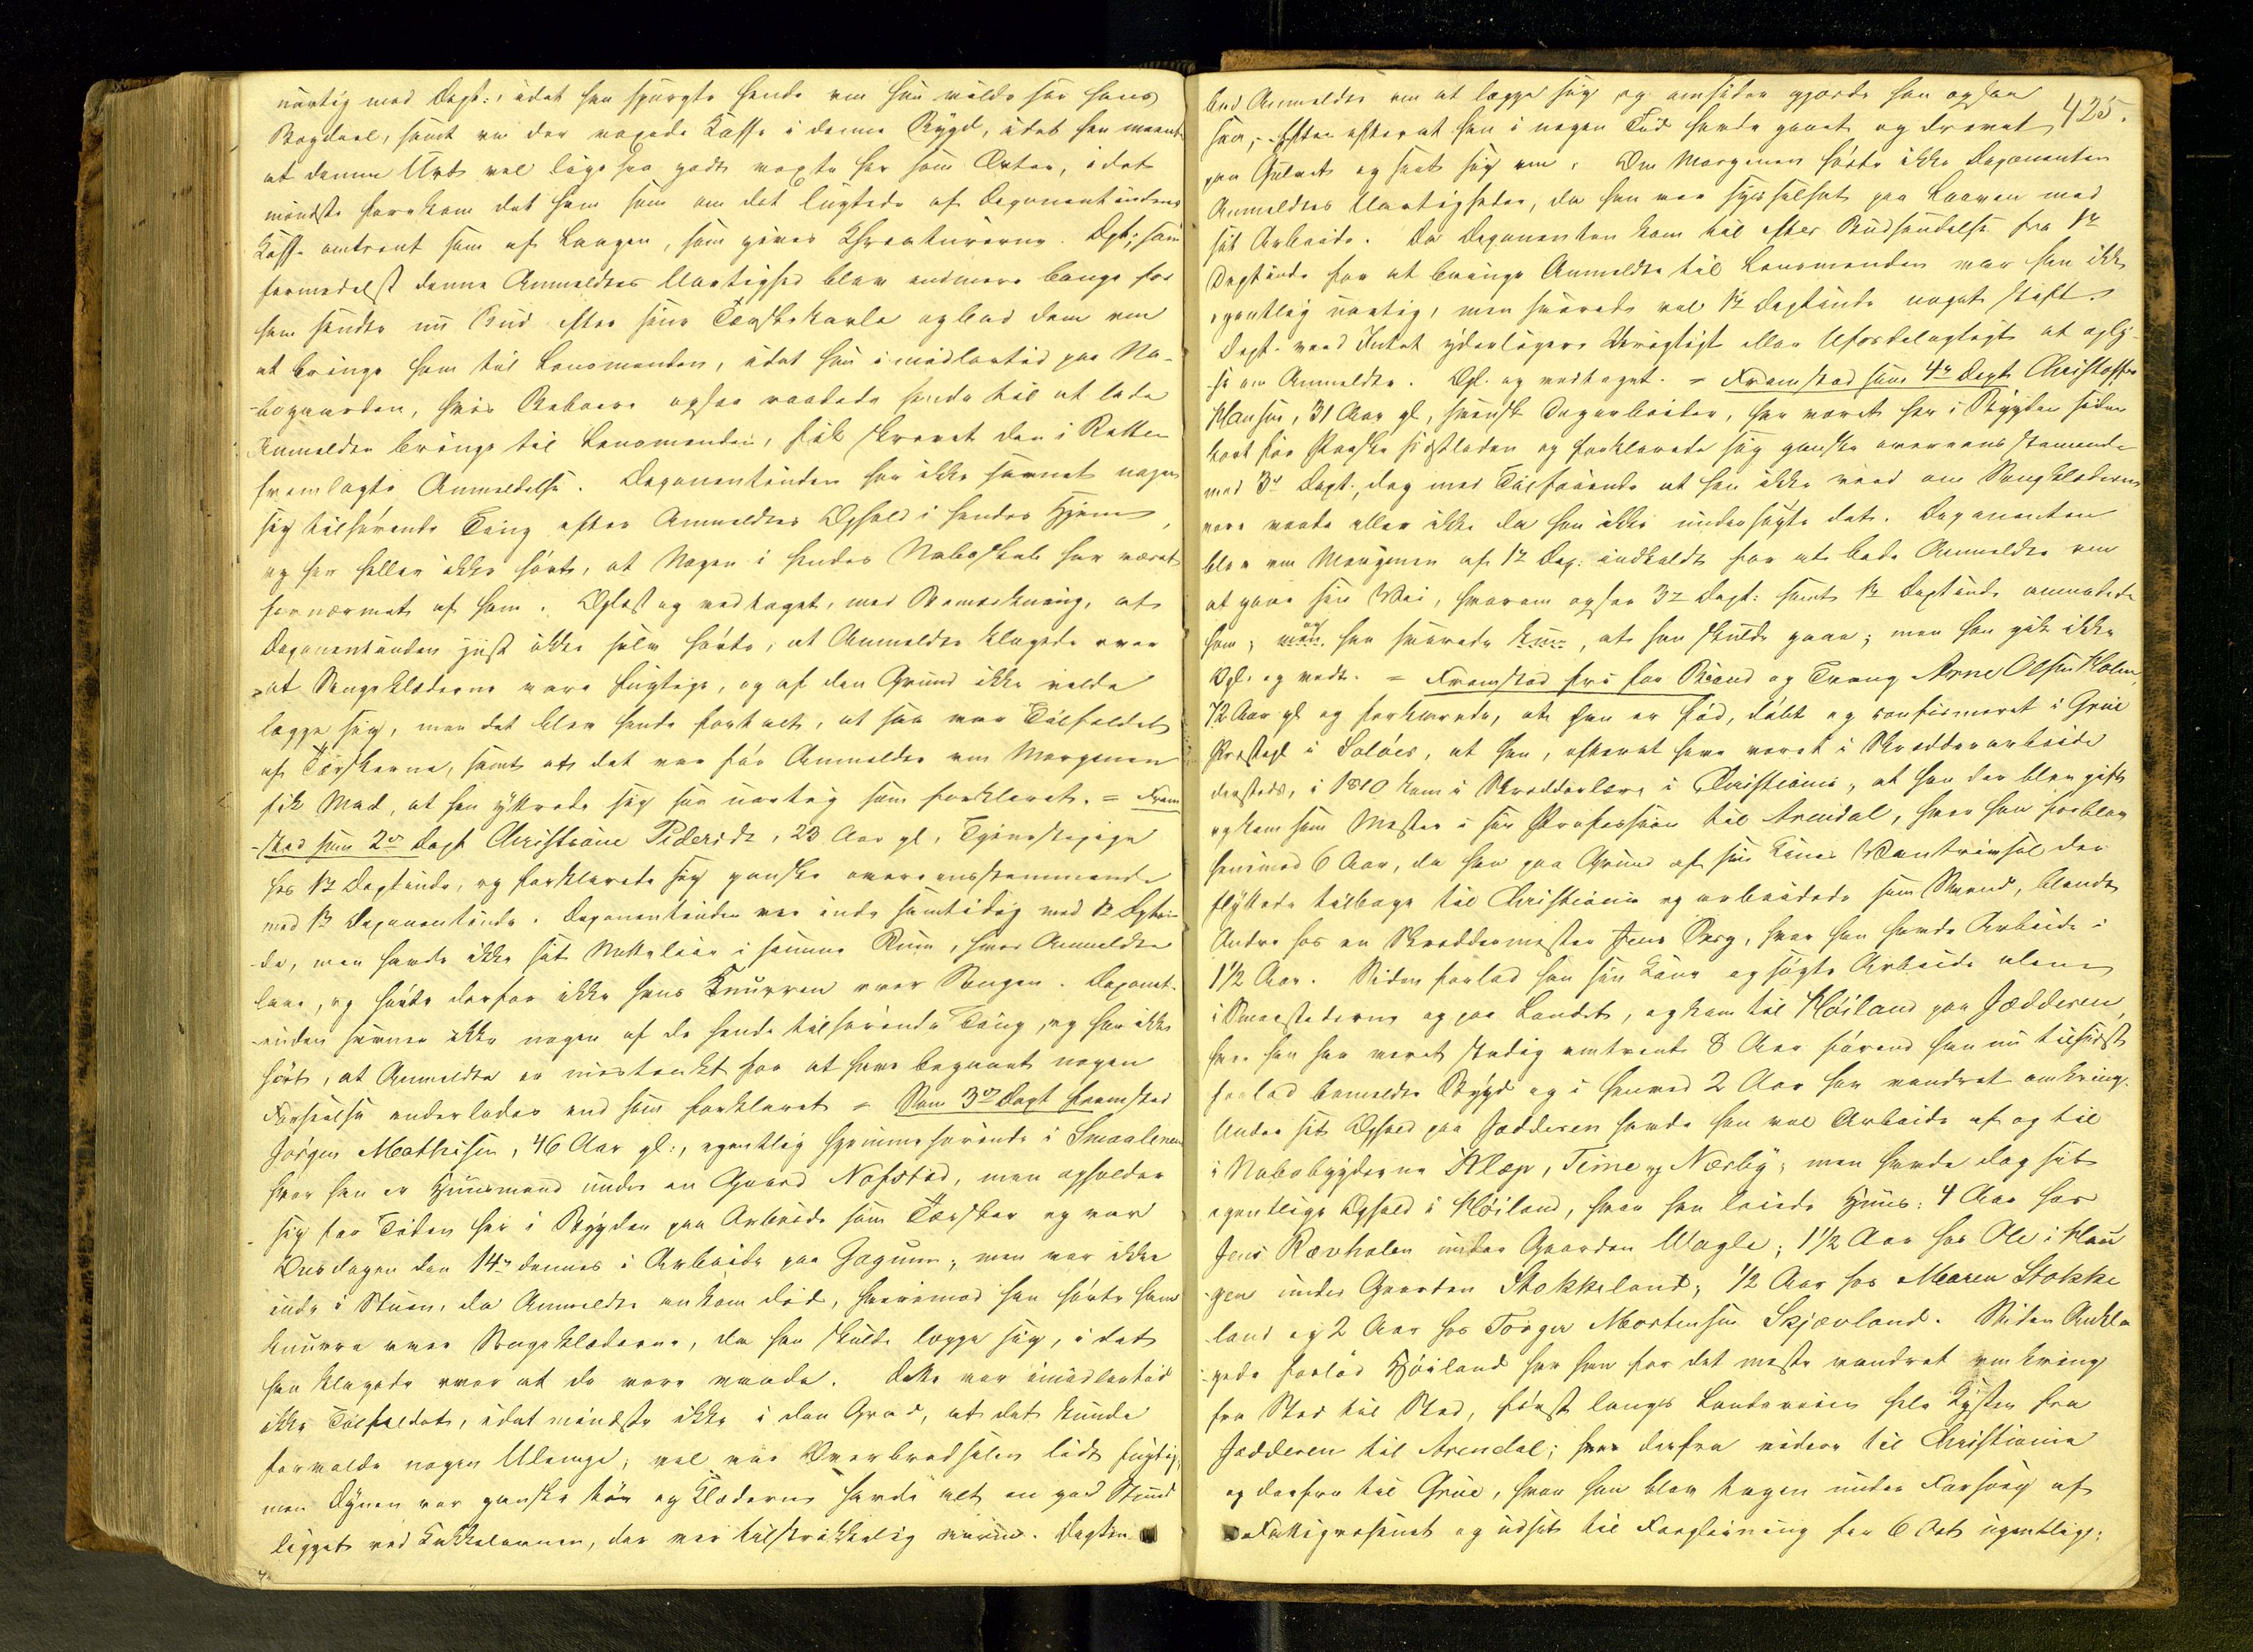 uartig mod Dept:, idet han spurgte hende om hun vilde see hans
Bagdeel, samt om der voxede Kaffe i denne Bygd, idet han meente
at denne Urt vel lige saa godt voxte her som Erter, i det
mindste forekom det ham som om det lugtede af Deponentindens
Kaffe omtrent som af Laagen, som gives Khreaturerne. Dpt:, som
formedelst denne Anmeldtes Uartighed blev endmere bange for
ham sendte nu Bud efter sine Tærskekarle og bad dem om
at bringe ham til Lensmanden, idet hun imidlertid paa Na-
bogaarden, hvis Beboere ogsaa raadede hende til at lade
Anmeldte bringe til Lensmanden, fik skrevet den i Retten
fremlagte Anmeldelse. Deponentinden har ikke savnet nogen
sig tilhørende Ting efter Anmeldtes Ophold i hendes Hjem,
og har heller ikke hørt, at Nogen i hendes Naboskab har været
fornærmet af ham. Oplæst og vedtaget, med Bemærkning, at
Deponentinden just ikke selv hørte, at Anmeldte klagede over
at Sengeklæderne vare fugtige, og af den Grund ikke vilde
lægge sig, men det blev hende fortalt, at saa var Tilfældet
af Tærskerne, samt at det var før Anmeldte om Morgenen
fik Mad, at han yttrede sig saa uartig som forklaret. = Frem
stod som 2de Dept Christiane Piderick, 23 Aar gl, Tjenestepige
hos 1te Deptinde, og forklarede sig ganske overensstemmende
med 1te Deponentinde. Deponentinden var inde samtidig med 1te Dptin-
de, men havde ikke sit Natteleie i samme Rum, hvor Anmeldte
laae, og hørte derfor ikke hans Knurren over Sengen. Deponent-
inden savner ikke nogen af de hende tilhørende Ting, og har ikke
hørt, at Anmeldte er mistænkt for at have begaaet nogen
Forseelse anderledes end som forklaret = Som 3die Dept fremstod
Jørgen Mathisen, 46 Aar gl:, egentlig hjemmehørende i Smaalenene
hvor han er Huusmand under en Gaard Nofstad, men opholder
sig for Tiden her i Bygden paa Arbeide som Tærsker og var
Onsdagen den 14de dennes i Arbeide paa Gogum, men var ikke
inde i Stuen, da Anmeldte ankom did, hvorimod han hørte ham
knurre over Sengeklæderne, da han skulde lægge sig, i det
han klagede over at de vare vaade. Dette var imidlertid
ikke Tilfældet, idet mindste ikke i den Grad, at det kunde
forvolde nogen Ulempe, vel var Overbredselen lidt fugtig,
men Dynen var ganske tør og Klæderne havde alt en god Stund
ligget ved Kakkelovnen, der var tilstrækkelig varm. Depten
425.
bad Anmeldte om at lægge sig, og omsider gjorde han ogsaa
saa, efterat han i nogen Tid havde gaaet og drevet
paa Gulvet og seet sig om. Om Morgenen hørte ikke Deponenten
Anmeldtes Uartigheder, da han var sysselsat paa Laaven med
sit Arbeide. Da Deponenten kom til efter Budsendelse fra 1te
Deptinde for at bringe Anmeldte til Lensmanden var han ikke
egentlig uartig, men svarede vel 1te Deptinde noget stift.
Dept. veed Intet yderligere Urigtigt eller Ufordelagtigt at oply-
se om Anmeldte. Opl. og vedtaget. = Fremstod som 4de Dept Christoffer
Hansen, 31 Aar gl, svensk Dagarbeider, har været her i Bygden siden
kort før Paaske sidstleden og forklarede sig ganske overeensstemmende
med 3die Dept., dog med Tilføiende at han ikke veed om Sengklæderne
vare vaade eller ikke da han ikke undersøgte det. Deponenten
blev om Morgenen af 1te Dep: indkaldt for at bede Anmeldte om
at gaae sin Vei, hvorom ogsaa 3die Dept: samt 1te Deptinde anmodede
ham; og han svarede kun, at han skulde gaae; men han gik ikke
Opl. og vedt. = Fremstod fri for Baand og Tvang Arne Olsen Holm,
72 Aar gl og forklarede, at han er fød, døbt og confirmeret i Grue
Præstegl i Soløer, at han, efterat have været i Skrædderarbeide
dersteds, i 1810 kom i Skrædderlære i Christiania, at han der blev gift
og kom som Mester i sin Profession til Arendal, hvor han forblev
henimod 6 Aar, da han paa Grund af sin Kones Vantrivsel der
flyttede tilbage til Christiania og arbeidede som Svend, blandt
Andre hos en Skræddermester Jens Berg, hvor han havde Arbeide i
1½ Aar. Siden forlod han sin Kone og søgte Arbeide alene
i Smaastederne og paa Landet, og kom til Høiland paa Jædderen,
hvor han har været stadig omtrent 8 Aar førend han nu tilsidst
forlod bemeldte Bygd og i henved 2 Aar har vandret omkring.
Under sit Ophold paa Jædderen havde han vel Arbeide af og til
i Nabobygderne Klæp, Time og Nærby, men havde dog sit
egentlige Ophold i Høiland, hvor han leiede Huus: 4 Aar hos
Jens Rævholen under Gaarden Vagle; 1½ Aar hos Ole i Hau
gen under Gaarden Stokkeland; ½ Aar hos Maren Stokke
land og 2 Aar hos Torger Mortensen Skjævland. Siden Ankla
gede forlod Høiland har han for det meste vandret omkring
fra Sted til Sted, først langs Landeveien hele Kysten fra
Jædderen til Arendal; derfra videre til Christiania
og derfra til Grue, hvor han blev tagen under Forsorg af
Fattigvæsenet og udsat til Forpleining for 6 Ort ugentlig;